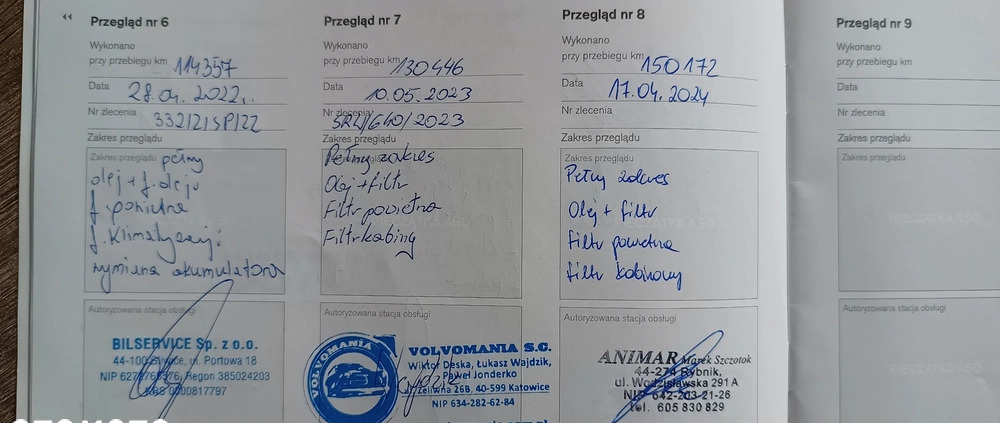 Przegląd nr 6
Wykonano
przy przebiegu km 114357
Data 28.04.2022.
Nr zlecenia
332121SP122
Zakres przeglądu
Zakres przeglądu pełny
olej + f. oleju
f. powietrza
f. Klimatyzacji
wymiana akumulatora
Autoryzowana stacja obsługi
BILSERVICE Sp. z o.o.
44-100 Gliwice, ul. Portowa 18
Regon 385024203
0000817797
Przegląd nr 7
Wykonano
przy przebiegu km 130446
Data
10.05.2023
Nr zlecenia
SRW/640/2023
Zakres przeglądu
Pełny zakres
Olej + filtr
Filtr powietrza
Filtr kabiny
Autoryzowana stacja obsługi
VOLVOMANIA
VOLVOMANIA S.C.
Wiktor Deska, Łukasz Wajdzik,
Paweł Jonderko
Żeliwna 26B, 40-599 Katowice
NIP 634-282-62-84
Przegląd nr 8
Wykonano
przy przebiegu km 150172
Data 17.04.2024
Nr zlecenia
Zakres przeglądu
Zakres przeglądu
Pełny zakres
Olej + filtr
filtr powietrza
filtr kabinowy
Autoryzowana stacja obsługi
ANIMAR Marek Szczotok
44-274 Rybnik,
ul. Wodzisławska 291 A
NIP 642-203-21-26
tel. 605 830 829
Przegląd nr 9
Wykonano
przy przebiegu km
Data
Nr zlecenia
Zakres przeglądu
Zakres przeglądu
Autoryzowana stacja obsługi